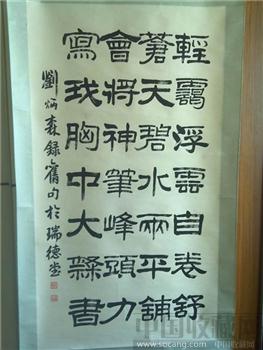 輕靄浮雲自卷舒
蒼天碧水兩平舖
會將神筆峰頭力
寫我胸中大隸書
劉炳森錄舊句於瑞德堂
中国收藏网
www.socang.com 中国收藏网